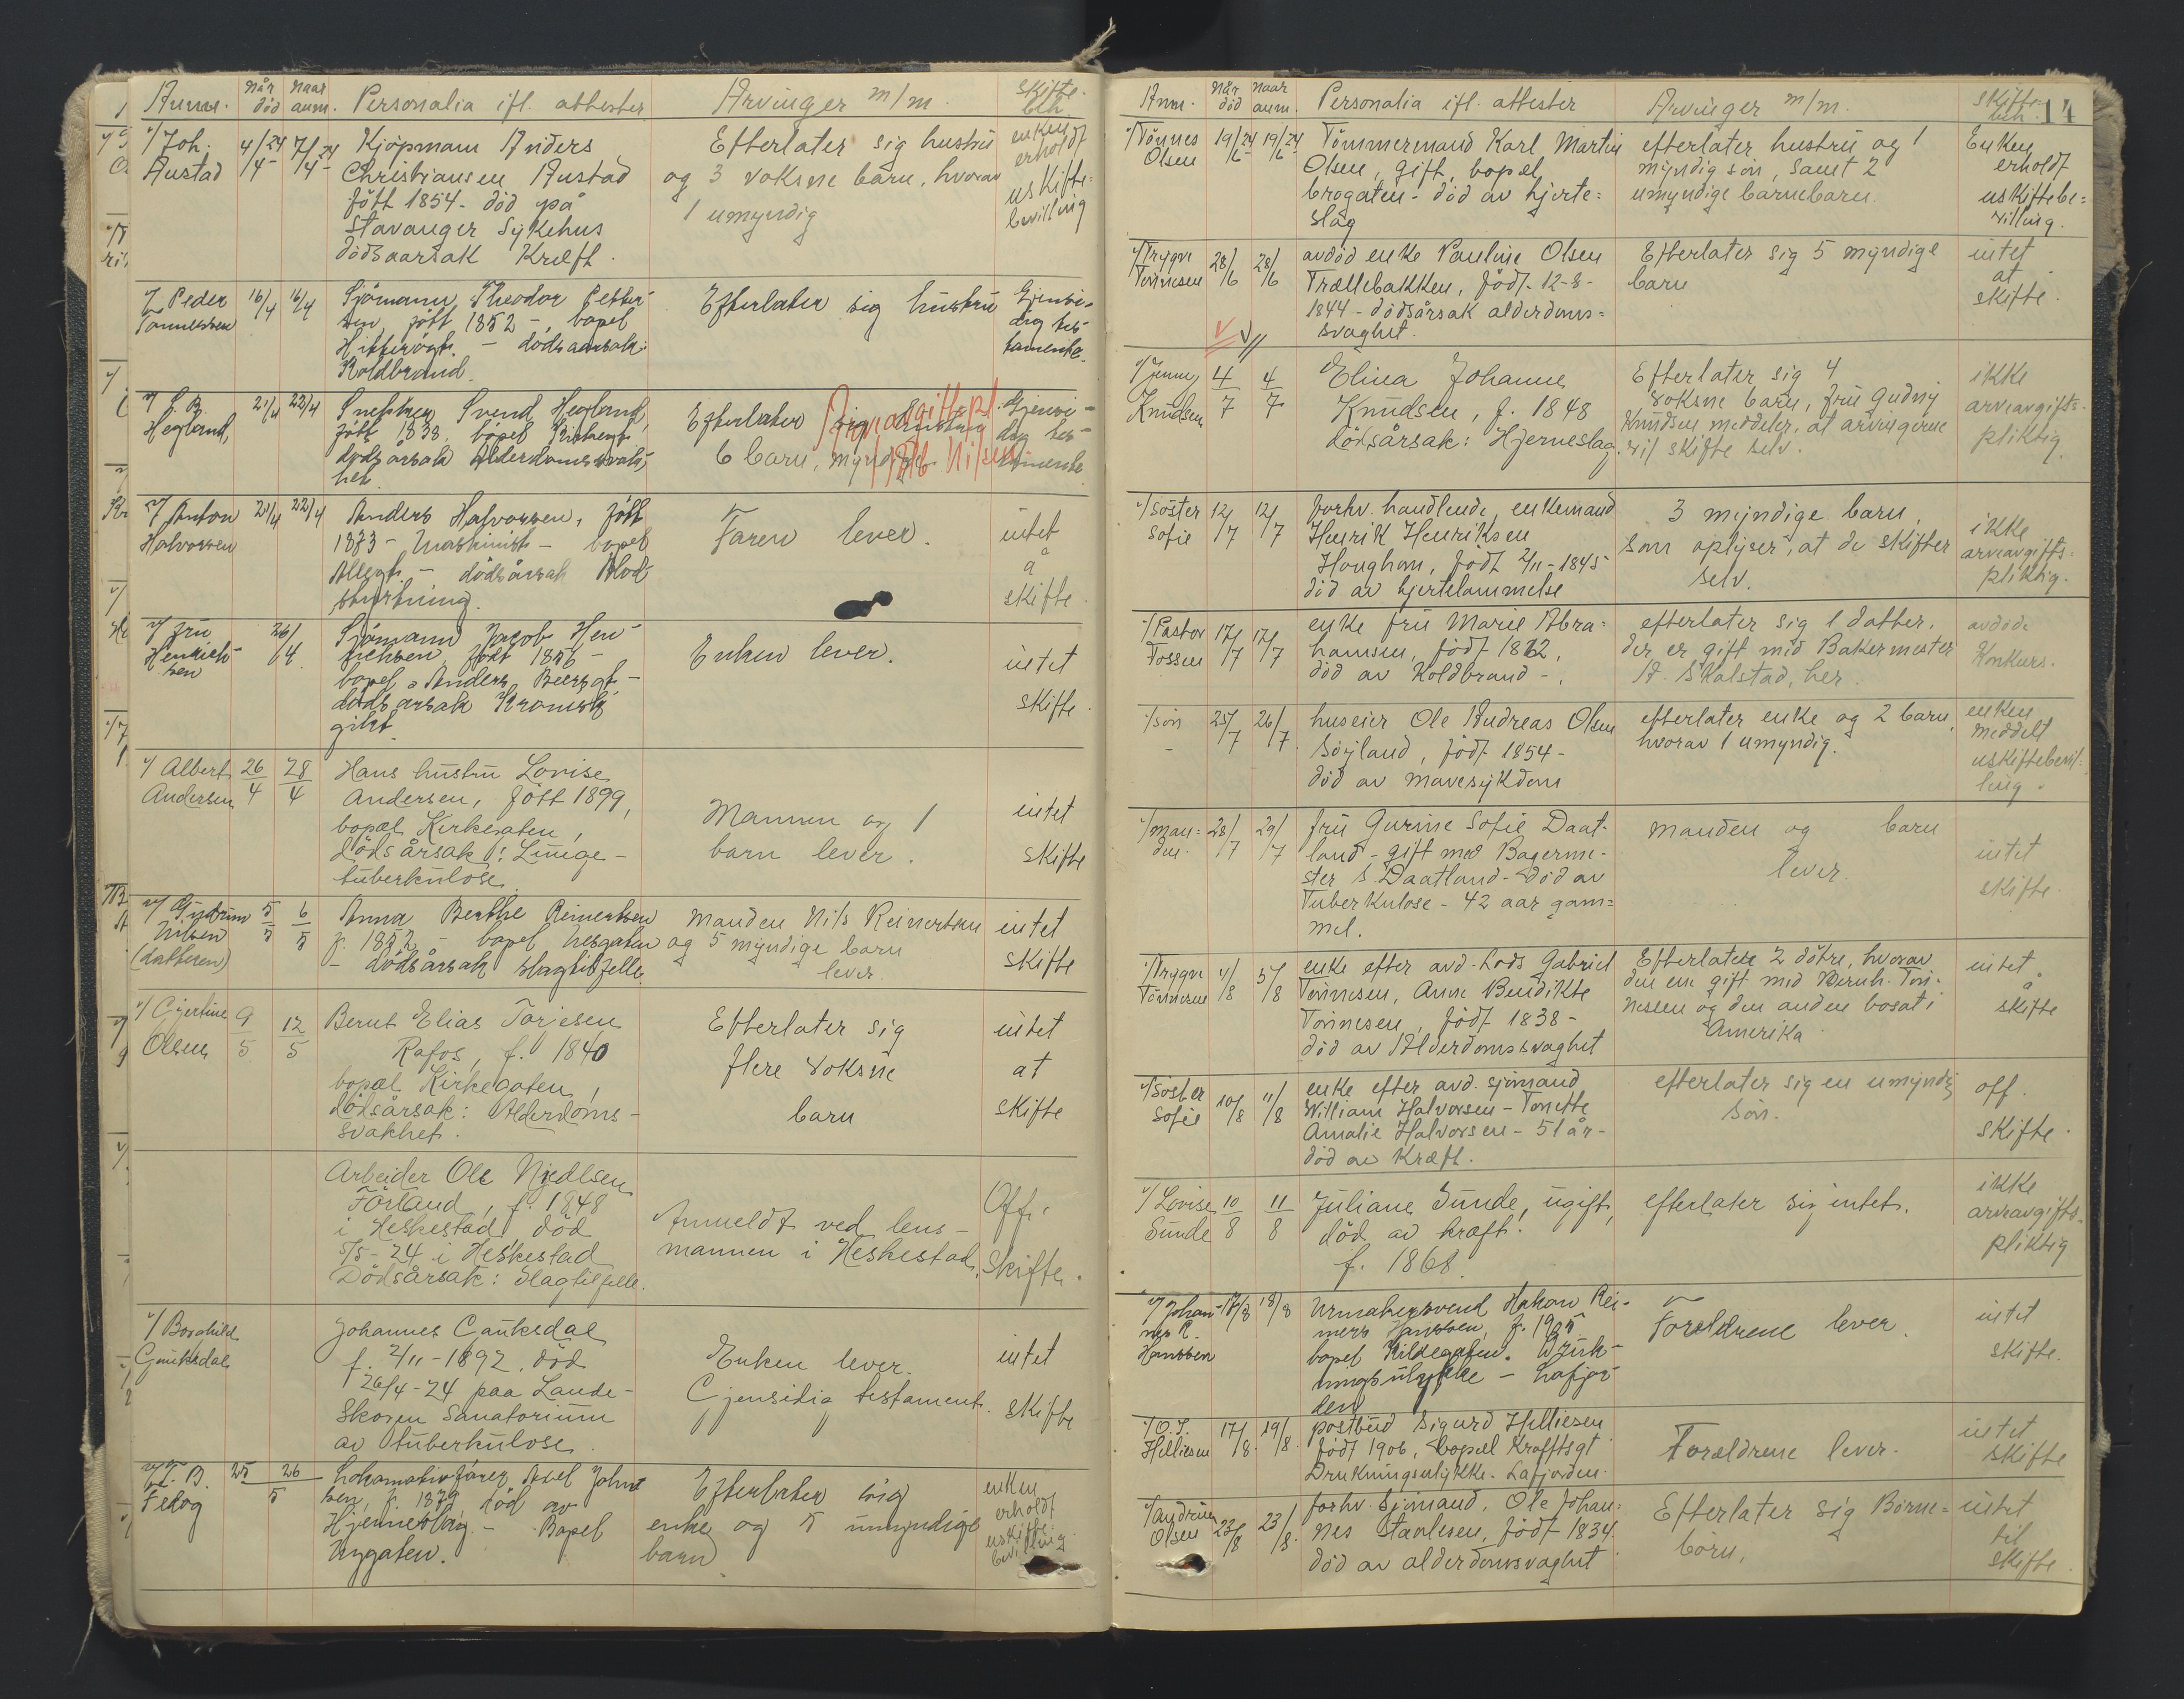 Anm. Når død Naar anm. Personalia ifl. attester Arvinger m/m. Skifte beh.
v/ Joh. Austad 4/24 /4- 7/24 /4-
Kjøpmann Anders
Christiansen Austad
født 1854 - død på
Stavanger Sykehus
dødsaarsak Kræft.
Efterlater sig hustru
og 3 voksne barn, hvorav
1 umyndig
enken
erholdt
uskifte-
bevilling
v/ Peder
Tønnessen
16/4 16/4
Sjømann Theodor Petter-
sen født 1852 -, bopel
Hitterøgt. - dødsaarsak:
Koldbrand.
Efterlater sig hustru
Gjensi-
dig tes-
tamente.
Hegland
21/4 22/4
Snekker Svend Hegland,
født 1838. bopel Kirkegt.
dødsårsak Alderdomssvak-
het
Efterlater sig hustru
6 barn, myndige.
Arveavgiftspl.
Gjensi-
dig tes-
tamente
v/ Anton
Halvorsen
21/4 22/4
Anders Halvorsen, født
1873 - Maskinist - bopel
Allegt. - dødsårsak Blod-
styrtning.
Faren lever.
intet
å
skifte
v/ fru
Henrich-
sen
26/4.
Sjømann Jacob Hen-
richsen født 1856 -
bopel Anders Beersgt. -
dødsarsak Kronisk
gikt.
Enken lever.
intet
skifte.
v/ Albert
Andersen
26/4 28/4
Hans hustru Lovise
Andersen, født 1899,
bopæl Kirkegaten,
dødsårsak: Lunge-
tuberkulose.
Mannen og 1
barn lever.
intet
skifte
v/ Gudrun
Nilsen
(datteren)
5/5 6/5
Anna Berthe Reinertsen
f. 1852 - bopel Nesgaten
- dødsårsak slagtilfelle.
Manden Nils Reinertsen
og 5 myndige barn
lever.
intet
skifte
v/ Gjertine
Olsen
9/5 12/5
Bernt Elias Torjesen
Rafos, f. 1840
bopæl Kirkegaten,
dødsårsak: Alderdoms-
svakhet.
Efterlater sig
flere voksne
barn
intet
at
skifte
Arbeider Ole Njedlsen
Førland, f. 1848
i Heskestad død
5/5 - 24 i Heskestad
Dødsårsak: Slagtilfelle.
Anmeldt ved lens-
mannen i Heskestad.
Off.
Skifte.
v/ Borghild
Gauksdal
Johannes Gauksdal
f. 2/11 - 1892. død
26/4 - 24 paa Lande-
skogen Sanatorium
av tuberkulose.
Enken lever.
Gjensidig testament.
intet
skifte
Feilog
25 26/5
Lokomotivfører Axel Johnt
sen, f. 1879, død av
Hjerneslag - Bopel
Nygaten.
Efterlater sig
enke og 5 umyndige
barn
enken
erholdt
uskifte-
bevilling
14
Anm. Når død Naar anm. Personalia ifl. attester Arvinger m/m. Skifte beh.
v/ Tønnes
Olsen
19/24 /6- 19/24 /6-
Tømmermand Karl Martin
Olsen, gift, bopæl
brogaten - død av hjerte-
slag
efterlater hustru og 1
myndig søn, samt 2
umyndige barnebarn.
Enken
erholdt
uskiftebe-
villing.
v/ Trygve
Tønnesen
28/6 28/6
avdød enke Pauline Olsen
Trællebakken, født 12-8-
1844 - dødsårsak alderdoms-
svaghet.
Efterlater sig 5 myndige
barn
intet
at
skifte.
v/ Jenny
Knudsen
4/7 4/7
Elina Johanne
Knudsen, f. 1848
dødsårsak: Hjerneslag.
Efterlater sig 4
voksne barn, fru Gudny
Knudsen meddeler, at arvingerne
vil skifte selv.
ikke
arveavgifts-
pliktig.
v/ Søster
Sofie
12/7 12/7
forhv. handlende, enkemand
Henrik Henriksen
Haughom, født 2/11 - 1845
død av hjertelammelse
3 myndige barn,
som oplyser, at de skifter
selv.
ikke
arveavgifts-
pliktig.
v/ Pastor
Fossum
17/7 17/7
enke fru Marie Abra-
hamsen, født 1862,
død av Koldbrand -.
efterlater sig 1 datter,
der er gift med Bakermester
A. Skalstad, her.
avdøde
konkurs.
v/ søn
25/7 26/7.
huseier Ole Andreas Olsen
Sirland, født 1854 -
død av mavesykdom
efterlater enke og 2 barn,
hvorav 1 umyndig.
enken
meddelt
uskiftebevil-
ling.
v/ man-
den.
28/7 29/7
fru Gurine Sofie Daat-
land - gift med Bagerme-
ster S. Daatland - død av
Tuberkulose - 42 aar gam-
mel.
manden og barn
lever.
intet
skifte.
v/ Trygve
Tønnesen
4/8 5/8
enke efter avd. Lods Gabriel
Tønnesen, Anne Bendikte
Tønnesen, født 1838 -
død av Alderdomssvaghet
Efterlater 2 døtre, hvorav
den ene gift med Bernh. Tøn-
nessen og den anden bosat i
Amerika
intet
å
skifte
v/ Søster
Sofie
10/8 11/8
enke efter avd. sjømand
William Halvorsen - Tonette
Amalie Halvorsen - 51 år -
død av Kræft.
efterlater sig en umyndig
søn.
off.
skifte.
v/ Lovise
Sunde
10/8 11/8
Juliane Sunde, ugift,
død av kræft.
f. 1868.
efterlater sig intet.
ikke
arveavgifts-
pliktig
v/ Johan-
nes R.
Hanssen
17/8 18/8
Urmakersvend Håkon Rei-
mers Hanssen, f. 1905
bopel Kildegaten. Druk-
ningsulykke - Lafjor-
den
Foreldrene lever.
intet
skifte.
v/ O. J.
Helliesen
17/8. 19/8.
postbud Sigurd Helliesen
født 1906, bopæl Krafftsgt
Drukningsulykke. Lafjorden.
Foreldrene lever.
intet
skifte
v/ Andrine
Olsen
23/8 23/8.
forhv. sjømand, Ole Johan-
nes Staalesen, født 1834.
død av alderdomsvaghet
Efterlater sig Børne-
børn,
intet
til
skifte.